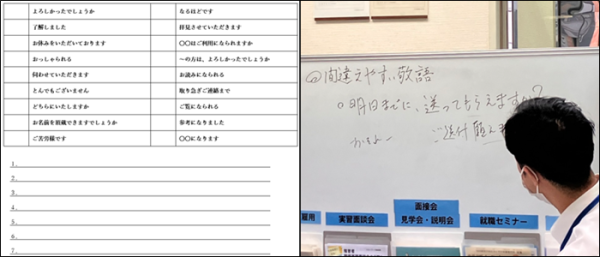 よろしかったでしょうか
なるほどです
了解しました
拝見させていただきます
お休みをいただいております
〇〇はご利用になられますか
おっしゃられる
〜の方は、よろしかったでしょうか
伺わせていただきます
お読みになられる
とんでもございません
取り急ぎご連絡まで
どちらにいたしますか
ご覧になられる
お名前を頂戴できますでしょうか
参考になりました
ご苦労様です
〇〇になります
1.
2.
3.
4.
5.
6.
7.
間違えやすい敬語
明日までに、送ってもらえますか?
ご送付願えま
雇用
実習面談会
面接会
見学会・説明会
就職セミナー